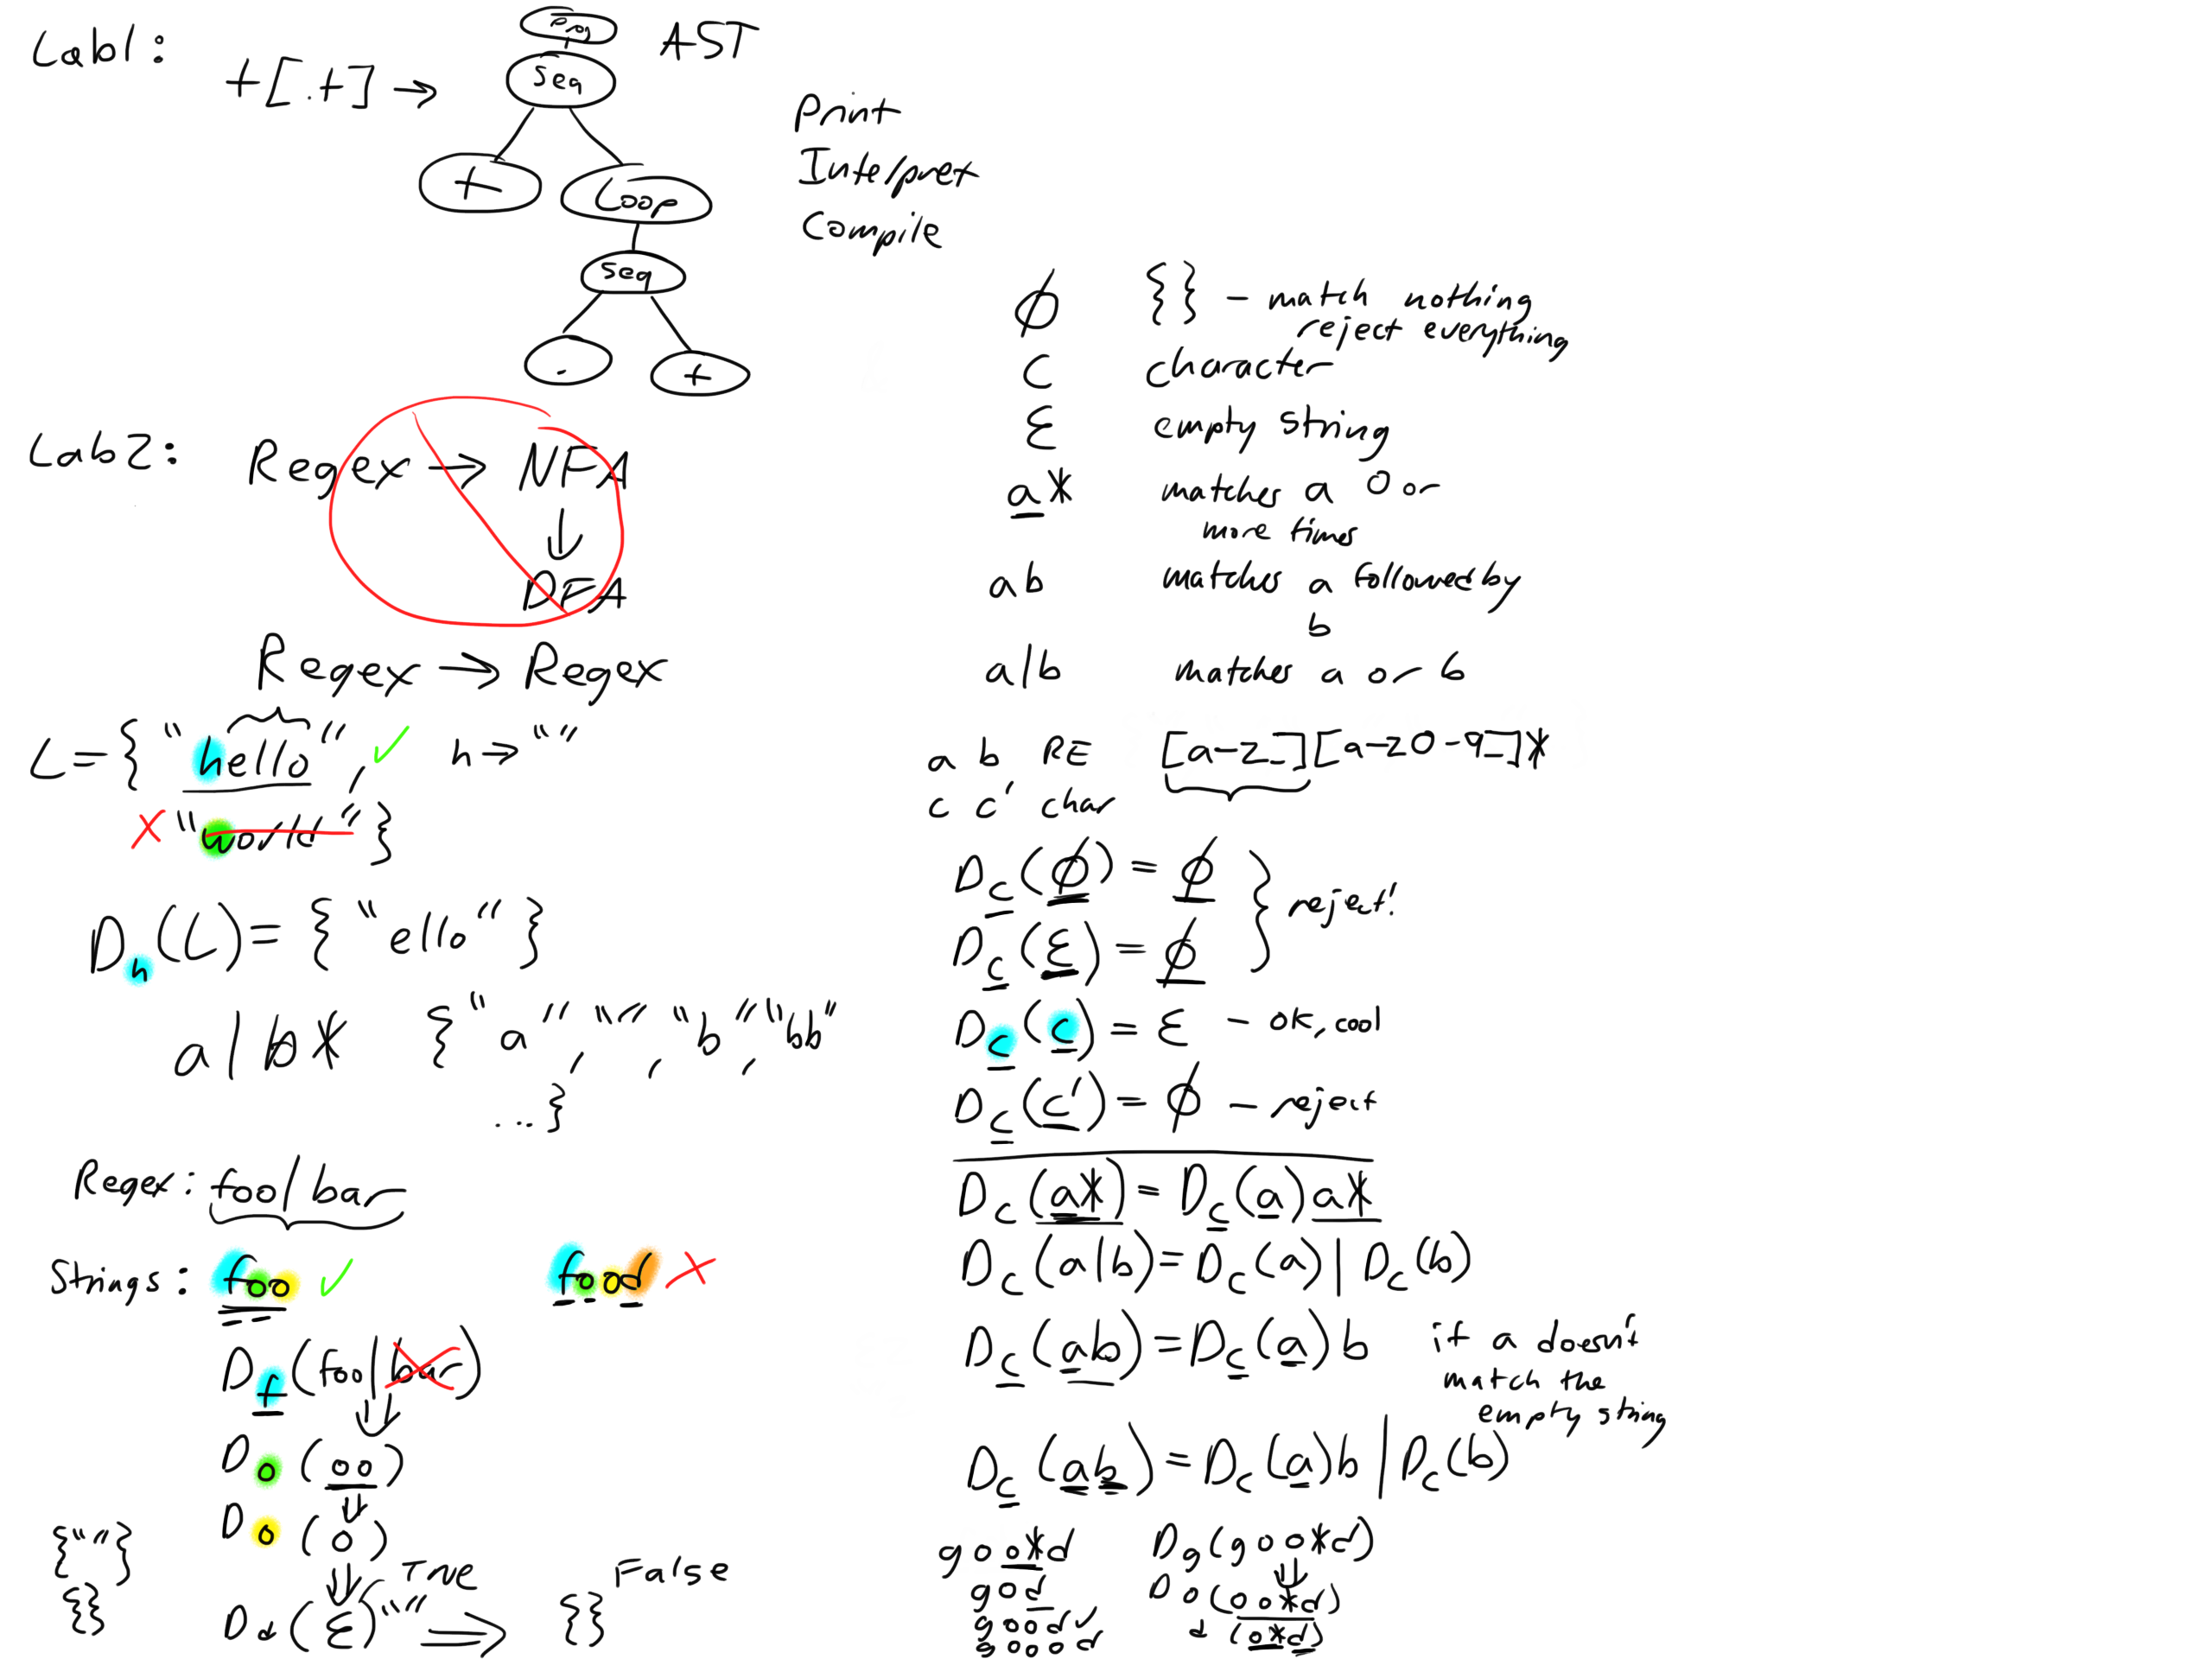 Lab1:
+[.+] →
Prog
AST
Seq
+
Loop
Seq
.
+
Print
Interpret
Compile
Lab2:
Regex → NFA
↓
DFA
Regex → Regex
L = { "hello", ✓ h → ""
x "world" }
D_h(L) = { "ello" }
a|b* { "a", "", "b", "bb"
...}
Regex: foo|bar
Strings: foo ✓ food ✗
D_f(foo|bar)
⇓
D_o(oo)
⇓
D_o(o)
⇓ True
{""}
{}
D_d(ε) "" ⟹ {} False
∅ {} - match nothing
reject everything
c character
ε empty string
a* matches a 0 or
more times
ab matches a followed by
b
a|b matches a or b
a b RE [a-z_][a-z0-9_]*
c c' char
D_c(∅) = ∅ } reject!
D_c(ε) = ∅
D_c(c) = ε - ok, cool
D_c(c') = ∅ - reject
D_c(a*) = D_c(a)a*
D_c(a|b) = D_c(a)|D_c(b)
D_c(ab) = D_c(a)b if a doesn't
match the
empty string
D_c(ab) = D_c(a)b | D_c(b)
goo*d D_g(goo*d)
⇓
god D_o(oo*d)
good ✓ d (o*d)
goood